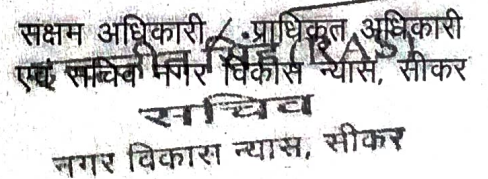 सक्षम अधिकारी / प्राधिकृत अधिकारी
सिंह (RAS)
एवं सचिव नगर विकास न्यास, सीकर
सचिव
नगर विकास न्यास, सीकर